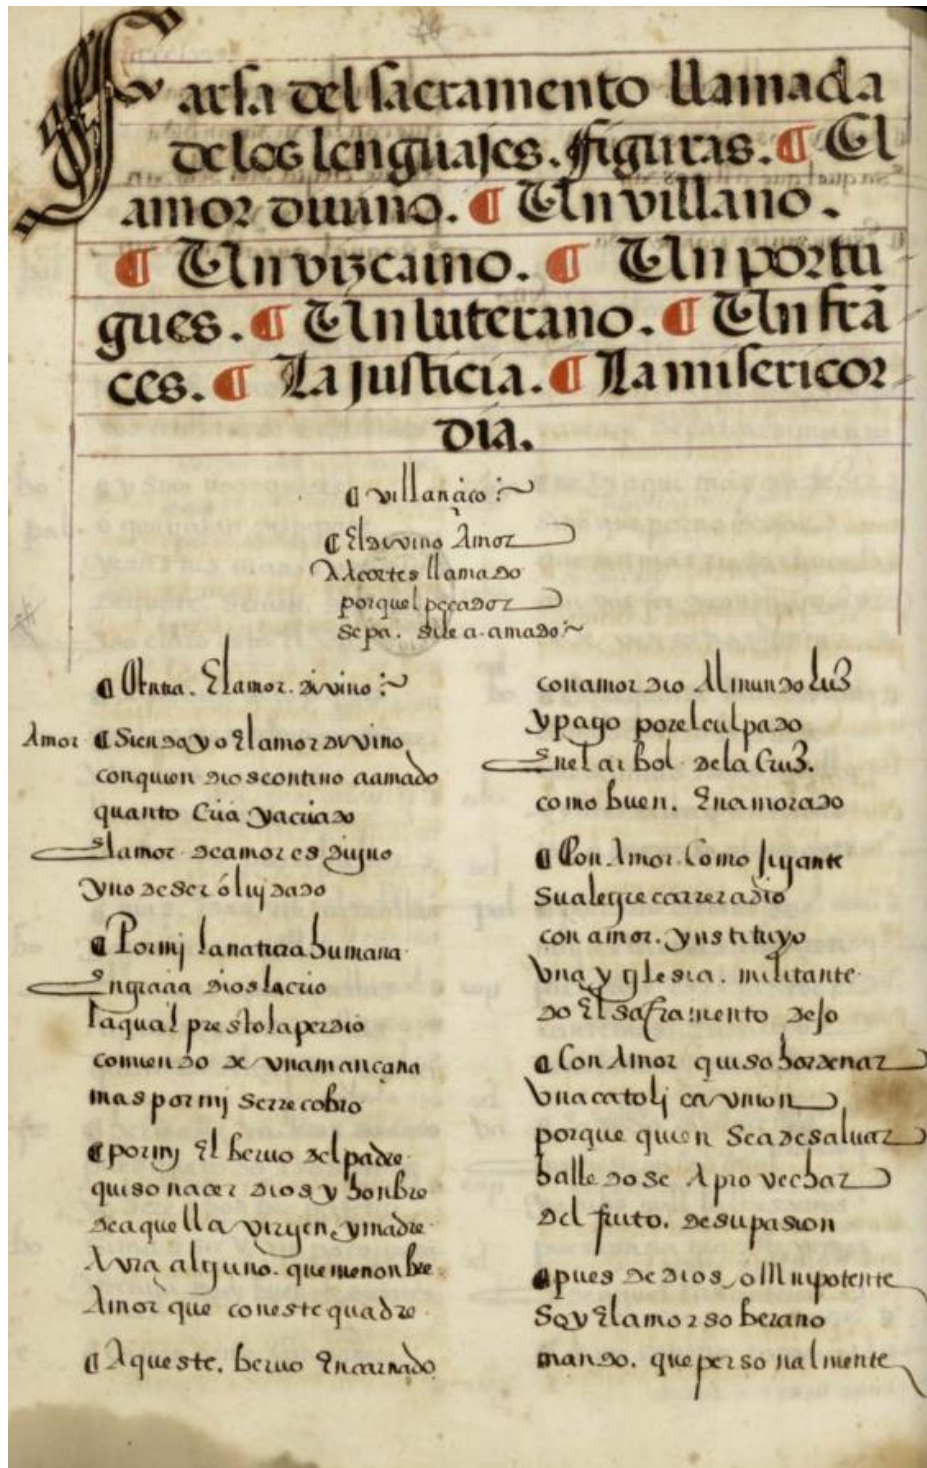 Farsa del sacramento llamada
de los lenguajes. figuras. ¶ El
amor diuino. ¶ Un villano.
¶ Un vizcaino. ¶ Un portu
gues. ¶ Un luterano. ¶ Un frā
ces. ¶ La justicia. ¶ La misericor
dia.
¶ villançico :~
¶ El divino Amor
A cortes llamado
porquel pecador
sepa. si le a. amado :~
¶ Entra. El amor. divino :~
Amor ¶ Siendo yo El amor divino
con quien dios contino a amado
quanto cria y a criado
El amor de amores digno
y no de ser olujdado
¶ Por mj la natura humana
En graçia dios la crio
la qual presto la perdio
comiendo de vna mançana
mas por mj se recobro
¶ por mj El beruo del padre
quiso nacer dios y honbre
de aquella virgen y madre
Avra alguno. que me nonbre
Amor que con este quadre
¶ Aqueste. beruo Encarnado
con amor dio Al mundo luz
y pago por el culpado
En el arbol de la Cruz.
como buen. Enamorado
¶ Con Amor. Como jigante
su alegre carrera dio
con amor. ynstituyo
vna yglesia. militante
do El sacramento dejo
¶ Con Amor quiso hordenar
vna catolica vnion
porque quien se a de saluar
halle do se Aprovechar
del fruto. de su pasion
¶ pues de dios, oMnipotente
Soy El amor soberano
mando. que personalmente